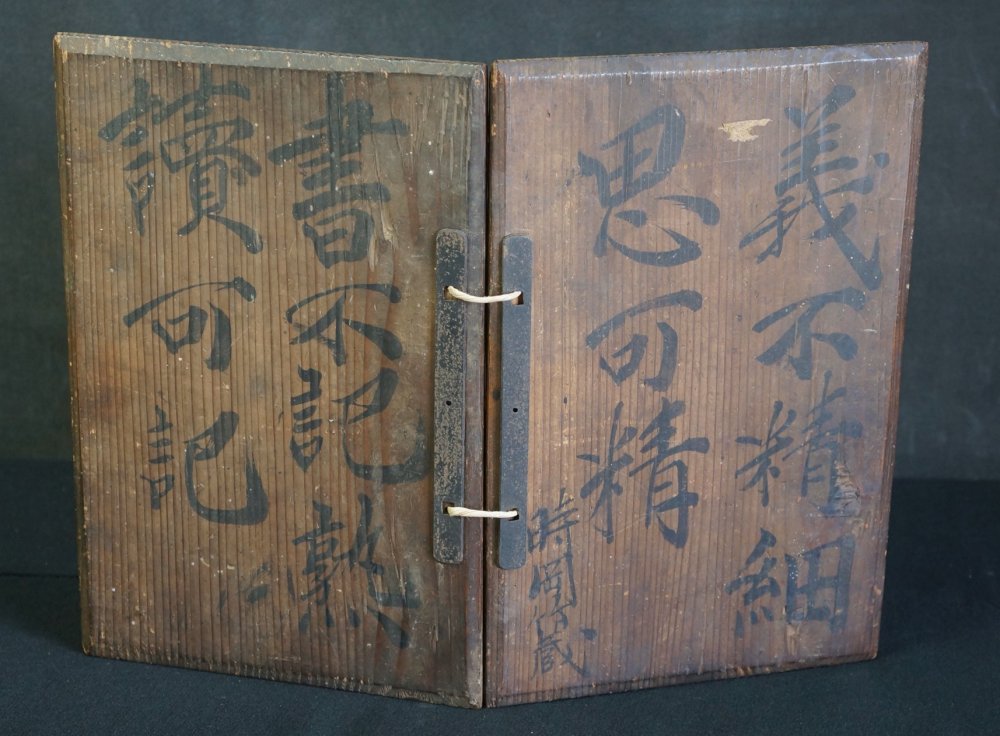 書不記熟
讀可記
義不精細
思可精
時岡 蔵